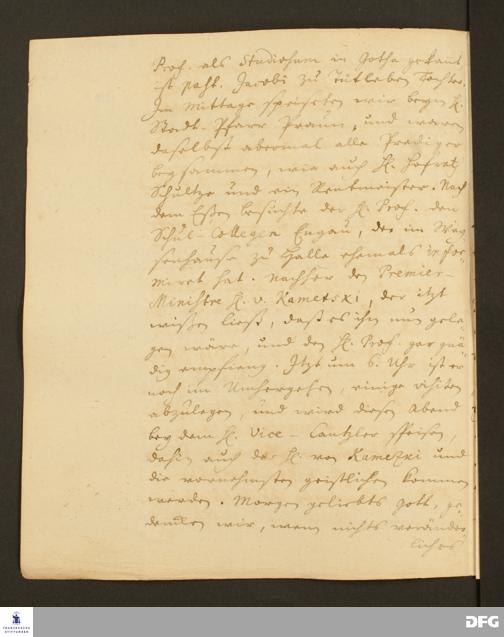 Prof. als Studiosum in Gotha gekant
ist Past. Jacobi zu Tütleben Tochter.
Im Mittage speiseten wir beym H.
Stadt-Pfarr Praun, und waren
daselbst abermal alle Prediger
beysammen, wie auch H. Hofrath
Schultze und ein Rentmeister. Nach
dem Eßen besuchte der H. Prof. den
Schul-Collegen Engau, der im Way-
senhause zu Halle ehemals infor-
miret hat. Nachher den Premier-
Ministre H. v. Kametzki, der itzt
wißen ließ, daß es ihm nun gele-
gen wäre, und den H. Prof. gar gnä-
dig empfieng. Itzt um 6. Uhr ist er
noch im Umhergehen, einige visiten
abzulegen, und wird diesen Abend
bey dem H. Vice-Cantzler speisen,
dahin auch der H. von Kametzki und
die vornehmsten geistlichen kommen
werden. Morgen geliebts Gott, ge-
dencken wir, wenn nichts veränder-
liches
FRANCKESCHE
STIFTUNGEN
DFG